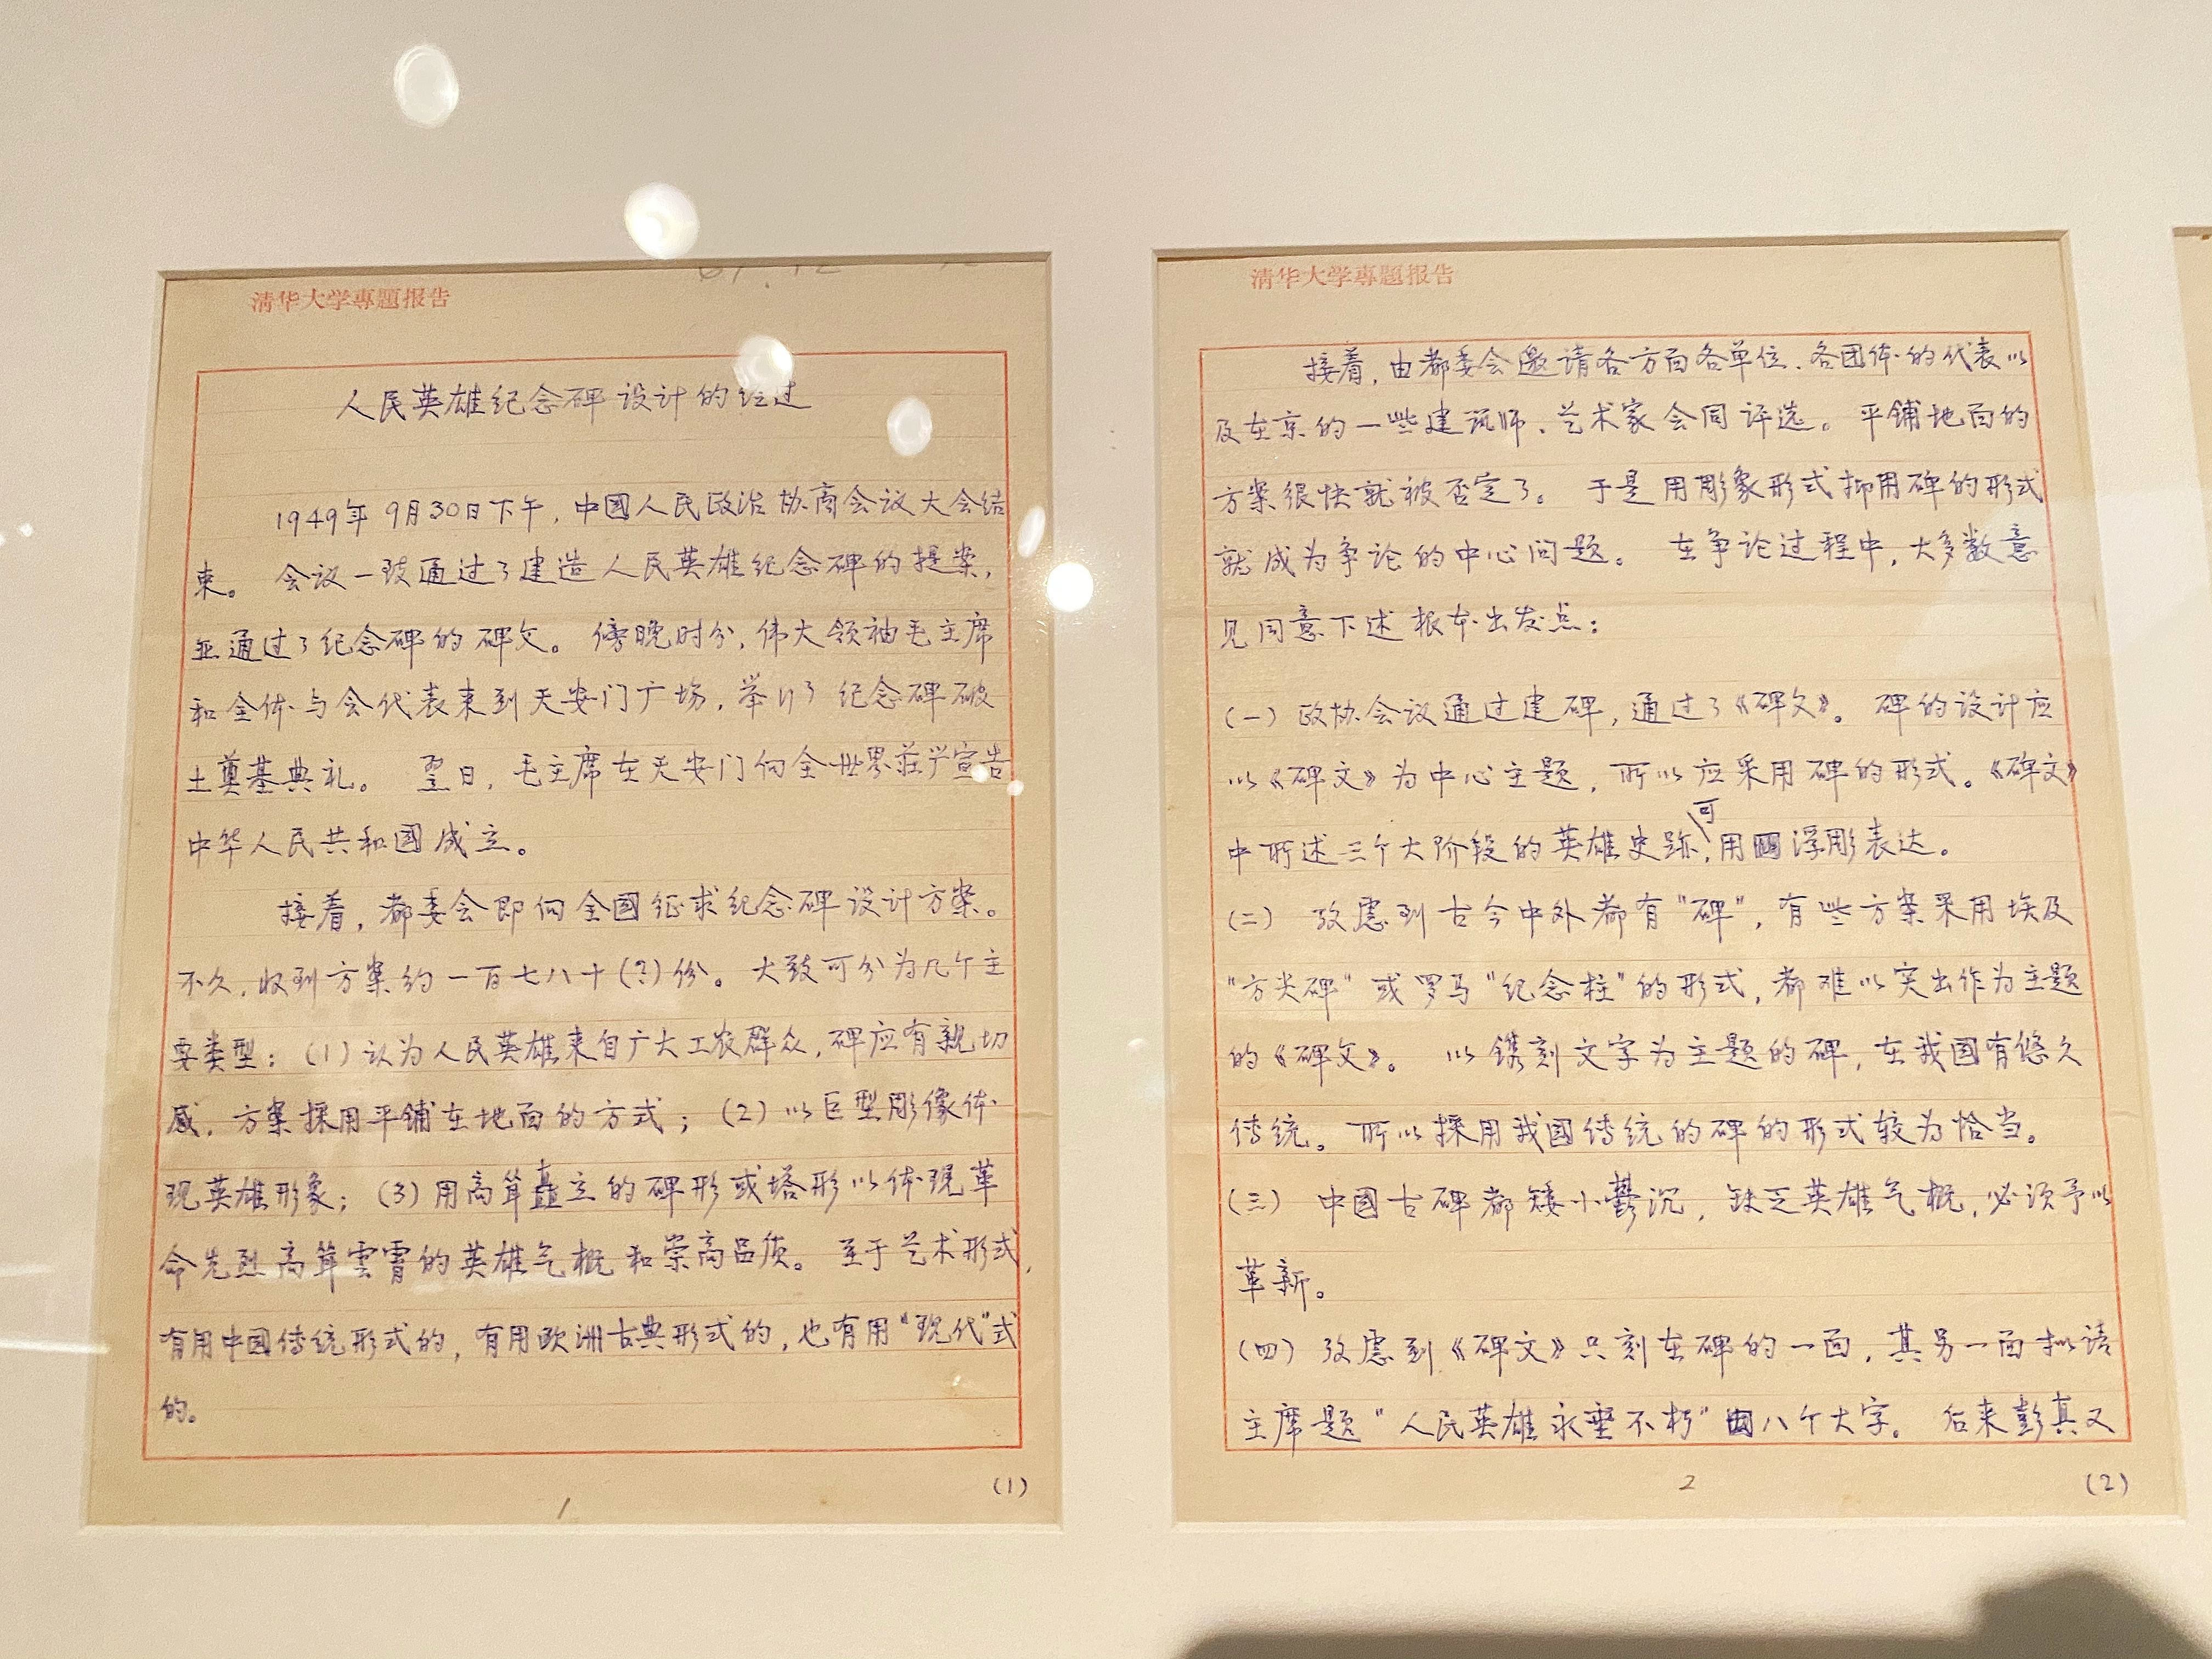 清华大学專題报告
人民英雄纪念碑设计的经过
1949年9月30日下午，中國人民政治协商会议大会结
束。 会议一致通过了建造人民英雄纪念碑的提案，
并通过了纪念碑的碑文。 傍晚时分，伟大领袖毛主席
和全体与会代表来到天安门广场，举行了纪念碑破
土奠基典礼。 翌日，毛主席在天安门向全世界庄严宣告
中华人民共和國成立。
接着，都委会即向全國征求纪念碑设计方案。
不久，收到方案约一百七八十(?)份。 大致可分为几个主
要类型：(1)认为人民英雄来自广大工农群众，碑应有親切
感，方案採用平鋪在地面的方式；(2)以巨型彫像体
现英雄形象；(3)用高耸矗立的碑形或塔形以体现革
命先烈高耸雲霄的英雄气概和崇高品质。 至于艺术形式，
有用中國传统形式的，有用欧洲古典形式的，也有用“现代”式
的。
(1)
1
清华大学專題报告
接着，由都委会邀请各方面各单位、各团体的代表以
及在京的一些建筑师、艺术家会同评选。 平鋪地面的
方案很快就被否定了。 于是用彫象形式抑用碑的形式
就成为争论的中心问题。 在争论过程中，大多数意
见同意下述根本出发点：
(一) 政协会议通过建碑，通过了《碑文》。 碑的设计应
以《碑文》为中心主题，所以应采用碑的形式。《碑文》
中所述三个大阶段的英雄史跡，可用浮彫表达。
(二) 攷慮到古今中外都有“碑”，有些方案采用埃及
“方尖碑”或罗马“纪念柱”的形式，都难以突出作为主题
的《碑文》。 以镌刻文字为主题的碑，在我国有悠久
传统。所以採用我國传统的碑的形式较为恰当。
(三) 中國古碑都矮小鬱沉，缺乏英雄气概，必须予以
革新。
(四) 攷慮到《碑文》只刻在碑的一面，其另一面拟请
主席题“人民英雄永垂不朽”八个大字。 后来彭真又
2
(2)